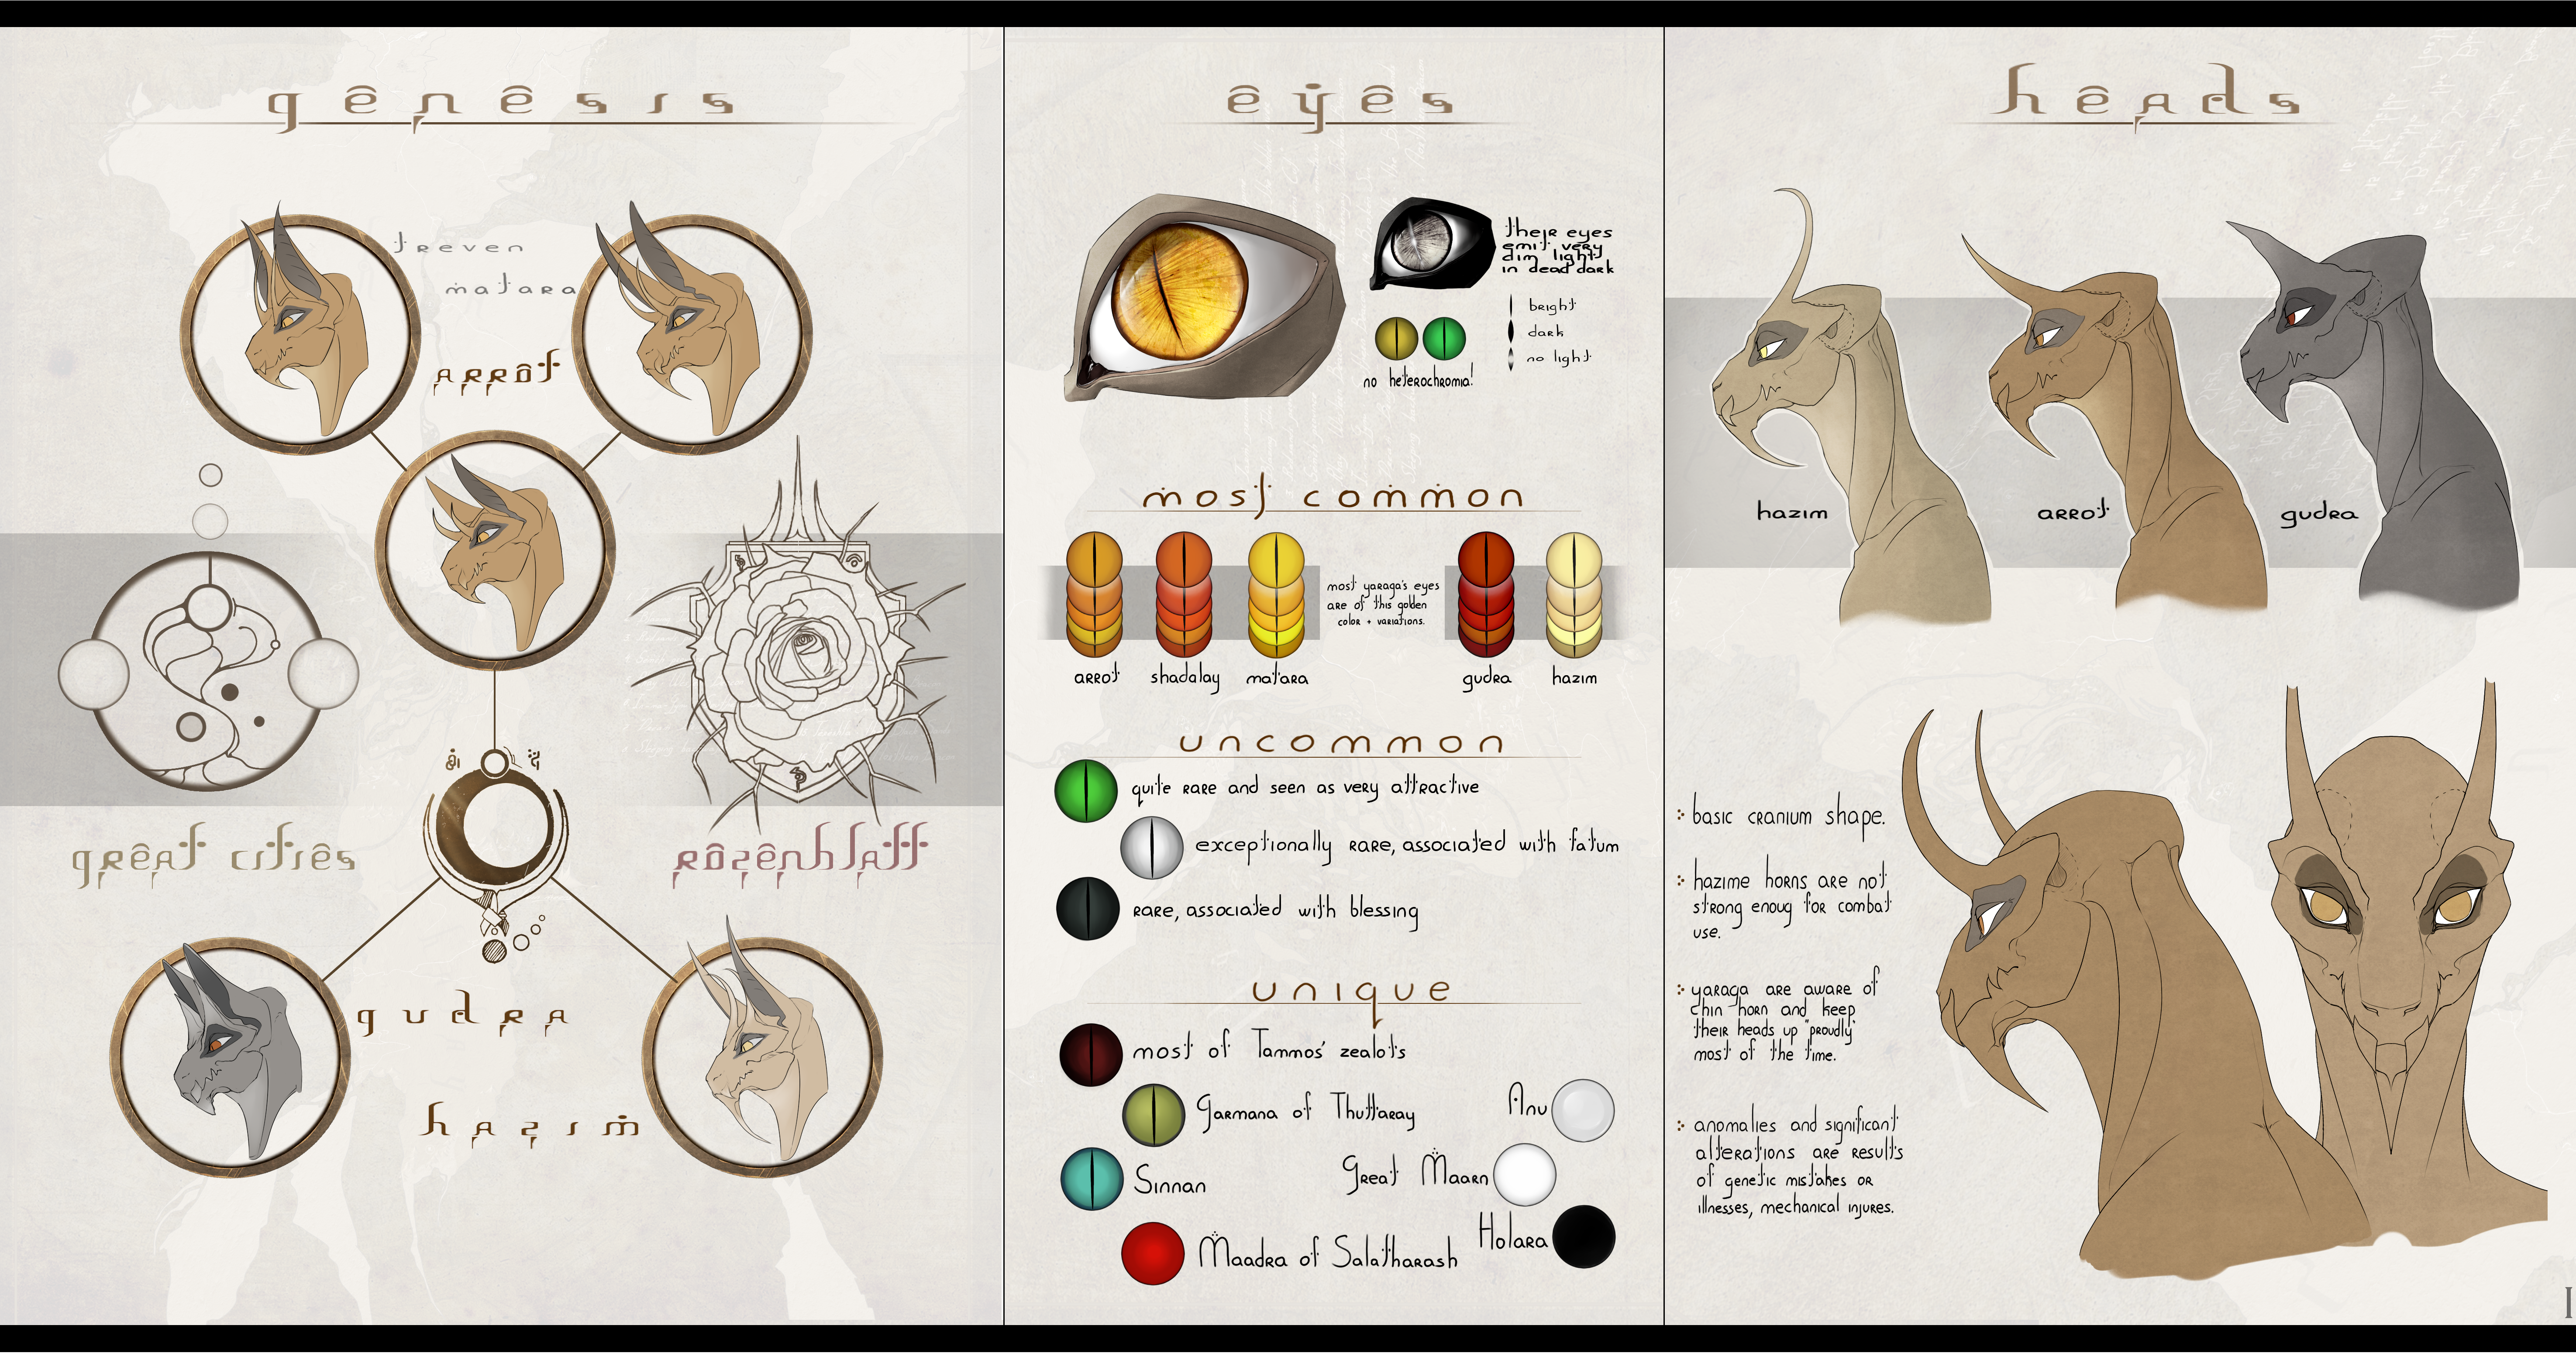 genesis
treven
matara
arrot
great cities
rozenblatt
gudra
hazim
eyes
their eyes
emit very
dim light
in dead dark
bright
dark
no light
no heterochromia!
most common
most yaraga's eyes
are of this golden
color + variations.
arrot shadalay matara gudra hazim
uncommon
quite rare and seen as very attractive
exceptionally rare, associated with fatum
rare, associated with blessing
unique
most of Tammos' zealots
Garmana of Thuttaray
Anu
Sinnan
Great Maarn
Maadra of Salatharash
Holara
heads
hazim
arrot
gudra
basic cranium shape.
hazime horns are not
strong enoug for combat
use.
yaraga are aware of
chin horn and keep
their heads up "proudly"
most of the time.
anomalies and significant
alterations are results
of genetic mistakes or
illnesses, mechanical injures.
I